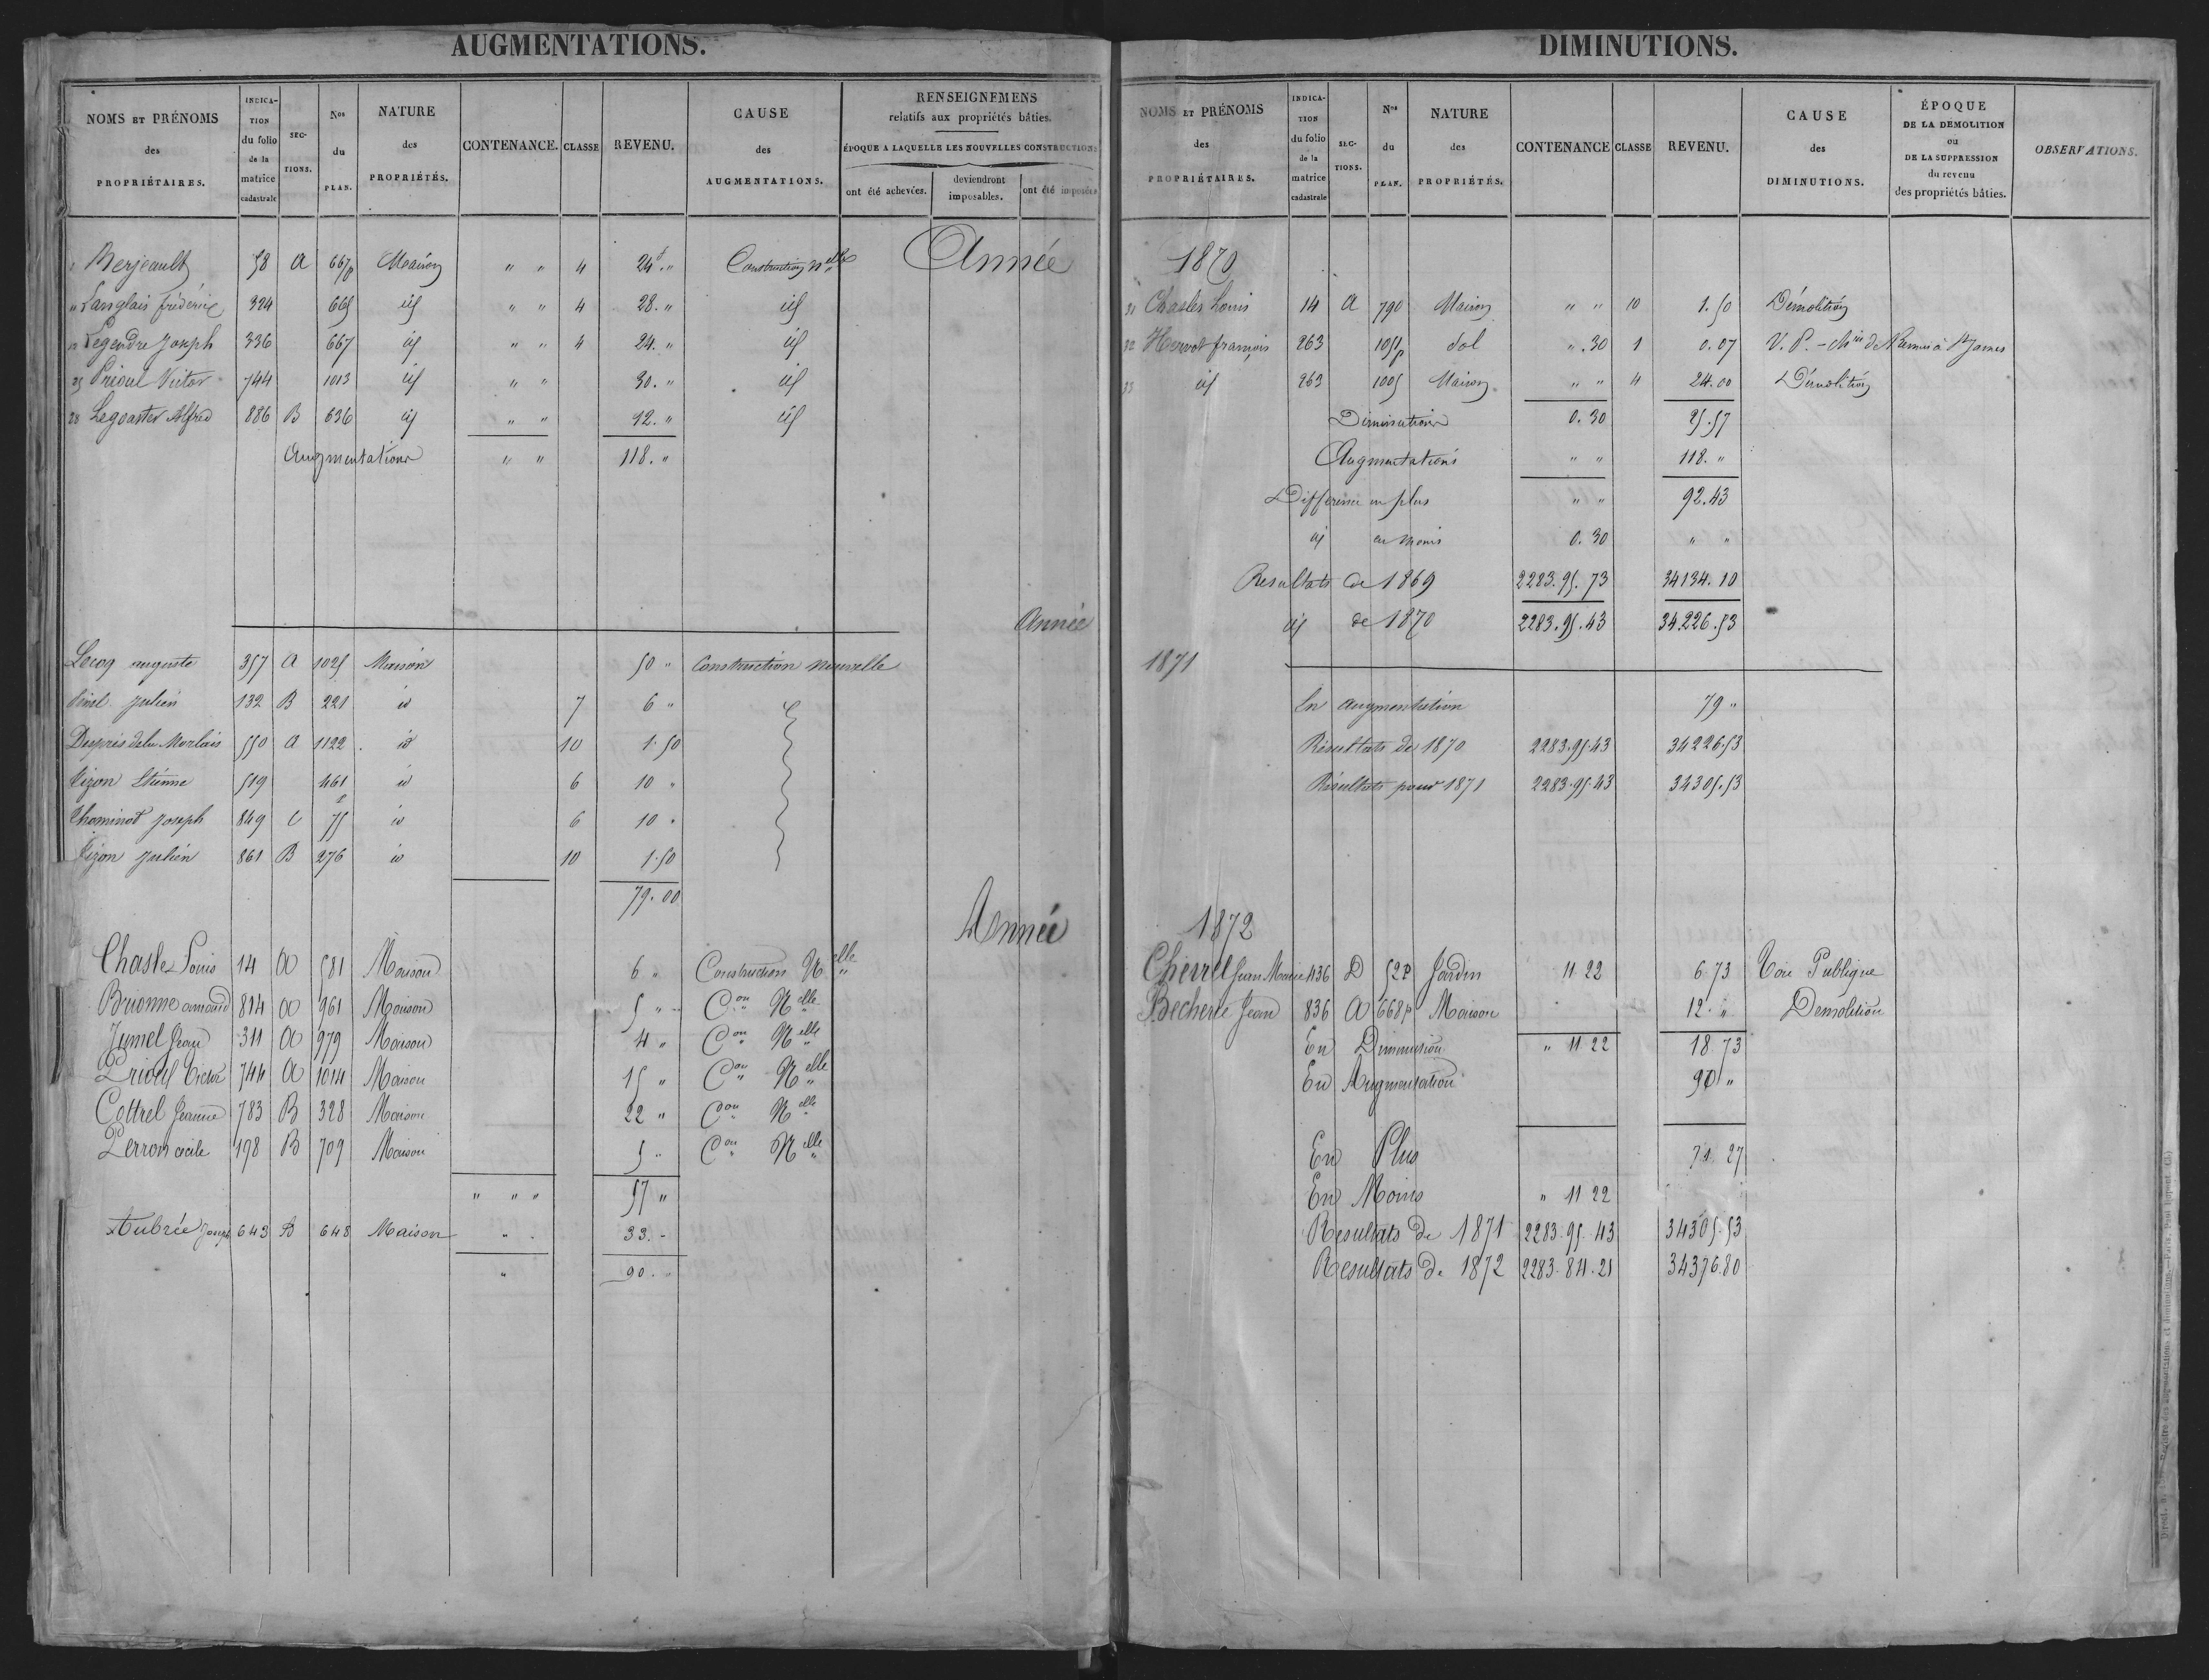 AUGMENTATIONS.
NOMS ET PRÉNOMS des PROPRIÉTAIRES. INDICA-TION du folio de la matrice cadastrale SEC-TIONS. Nos du PLAN. NATURE des PROPRIÉTÉS. CONTENANCE. CLASSE REVENU. CAUSE des AUGMENTATIONS. RENSEIGNEMENS relatifs aux propriétés bâties. ÉPOQUE A LAQUELLE LES NOUVELLES CONSTRUCTIONS ont été achevées. deviendront imposables. ont été imposées
Année
Berjeault 58 A 667p Maison " " 4 24f. " Construction nelle
" Langlais frédéric 324 665 id " " 4 28. " id
Legendre Joseph 336 667 id " " 4 24. " id
25 Prioul Victor 744 1013 id " " 30. " id
28 Legoaster Alfred 886 B 636 id " " 12. " id
Augmentations " " 118. "
Année
Lecoq auguste 357 A 1025 Maison 50 " Construction nouvelle
Pinel Julien 132 B 221 id 7 6 "
Desprès de la Morlais 550 A 1122 id 10 1.50
Tizon Etienne 519 461 id 6 10 "
Thominot Joseph 849 C 75 id 6 10 "
Tizon Julien 861 B 276 id 10 1.50
79.00
Année
Chasles Louis 14 A 581 Maison 6 " Construction Nelle
Brionne amand 814 A 961 Maison 5 " Con Nelle
Jumel Jean 311 A 979 Maison 4 " Con Nelle
Prioul Victor 744 A 1014 Maison 15 " Con Nelle
Cottrel Jeanne 783 B 328 Maison 22 " Con Nelle
Perron cécile 198 B 709 Maison 5 " Con Nelle
" " " 57 "
Aubrée Joseph 643 B 648 Maison " " 33. "
" 90. "
DIMINUTIONS.
NOMS ET PRÉNOMS des PROPRIÉTAIRES. INDICA-TION du folio de la matrice cadastrale SEC-TIONS. Nos du PLAN. NATURE des PROPRIÉTÉS. CONTENANCE CLASSE REVENU. CAUSE des DIMINUTIONS. ÉPOQUE DE LA DEMOLITION ou DE LA SUPPRESSION du revenu des propriétés bâties. OBSERVATIONS.
1870
31 Chasles Louis 14 A 790 Maison " " 10 1.50 Démolition
32 Hervot françois 263 1055p Sol ". 30 1 0.07 V. P. - Min de Rennes à St James
33 id 263 1005 Maison " " 4 24.00 Démolition
Diminutions 0.30 25.57
Augmentations " " 118. "
Différence en plus " " 92.43
id en moins 0.30 " "
Resultats de 1869 2283.95.73 34134.10
id de 1870 2283.95.43 34226.53
1871
En augmentation 79 "
Résultats de 1870 2283.95.43 34226.53
Résultats pour 1871 2283.95.43 34305.53
1872
Chevrel Jean Marie 436 D 52p Jardin 11 22 6.73 Voie Publique
Becherie Jean 836 A 668p Maison 12. " Démolition
En Diminution " 11 22 18.73
En Augmentation 90 "
En Plus 71.27
En Moins " 11 22
Resultats de 1871 2283.95.43 34305.53
Resultats de 1872 2283.84.21 34376.80